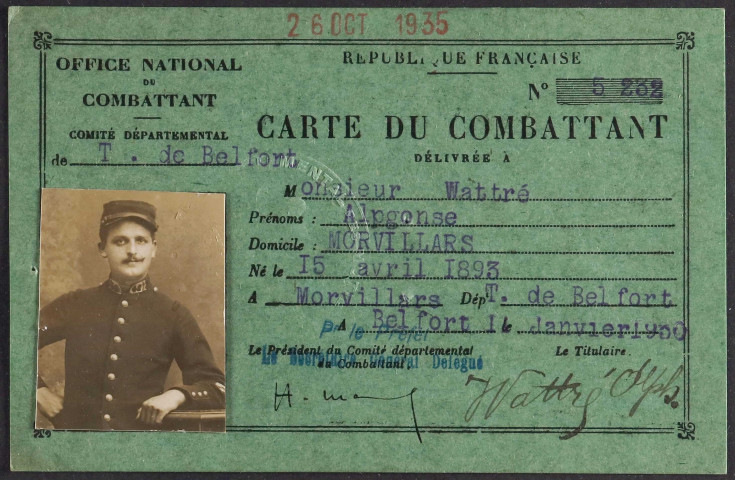 26 OCT 1935
OFFICE NATIONAL
DU
COMBATTANT
COMITÉ DÉPARTEMENTAL
de T. de Belfort
REPUBLIQUE FRANÇAISE
N° 5 262
CARTE DU COMBATTANT
DÉLIVRÉE À
Monsieur Wattré
Prénoms : Alpgonse
Domicile : MORVILLARS
Né le 15 avril 1893
A Morvillars Dép T. de Belfort
A Belfort 1 le Janvier 1930
Pr le Préfet
Le Président du Comité départemental
du Combattant,
Le Secrétaire Général Délégué
Le Titulaire.
Wattré Alph.